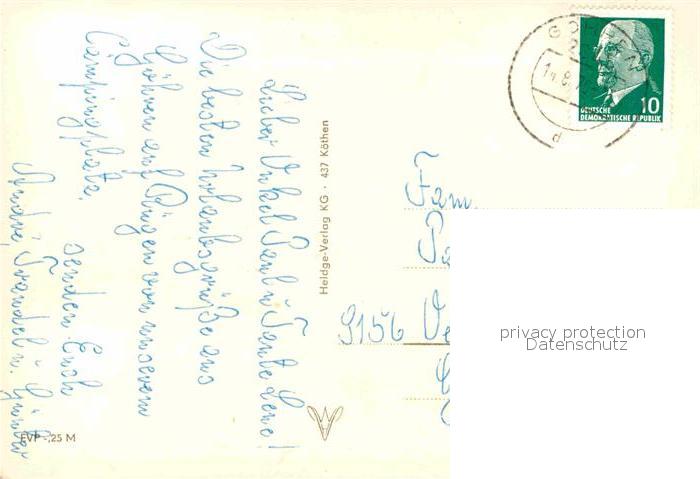 Lieber Onkel Paul u. Tante Lene!
Die besten Urlaubsgrüße aus
Göhren auf Rügen von unserem
Campingplatz.
senden Euch
André, Traudel u. Günter
Heldge-Verlag KG · 437 Köthen
EVP -,25 M
14.8.
d
DEUTSCHE
DEMOKRATISCHE REPUBLIK
10
Fam.
9156
privacy protection
Datenschutz